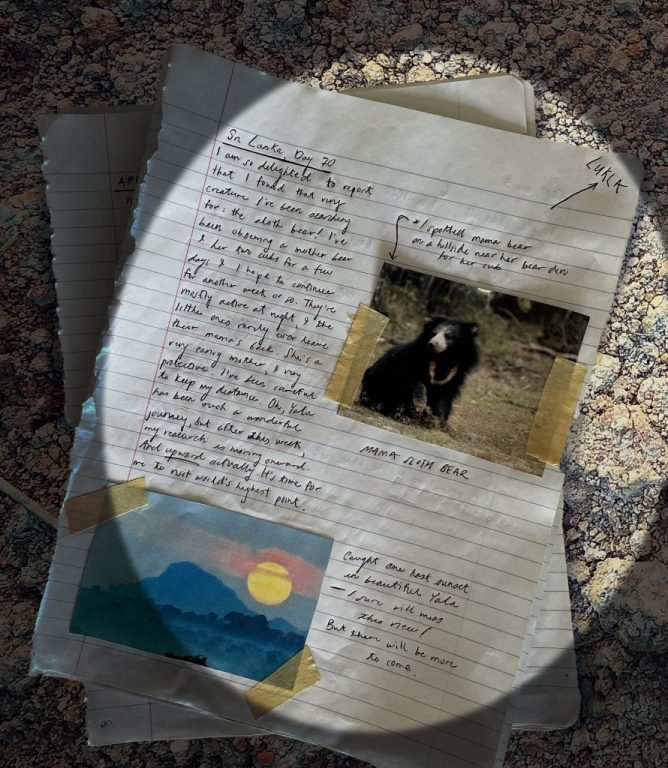 LUKLA
Sri Lanka Day 70
I am so delighted to report
that I found that very
creature I've been searching
for: the sloth bear! I've
been observing a mother bear
& her two cubs for a few
days & I hope to continue
for another week or so. They're
mostly active at night, & the
little ones rarely ever leave
their mama's back. She's a
very caring mother, & very
protective. I've been careful
to keep my distance. Oh, Yala
has been such a wonderful
journey, but after this week,
my research is moving onward.
And upward actually. It's time for
me to visit world's highest point.
*I spotted mama bear
on a hillside near her bear den
for her cubs
MAMA SLOTH BEAR
Caught one last sunset
in beautiful Yala
– I sure will miss
this view!
But there will be more
to come.